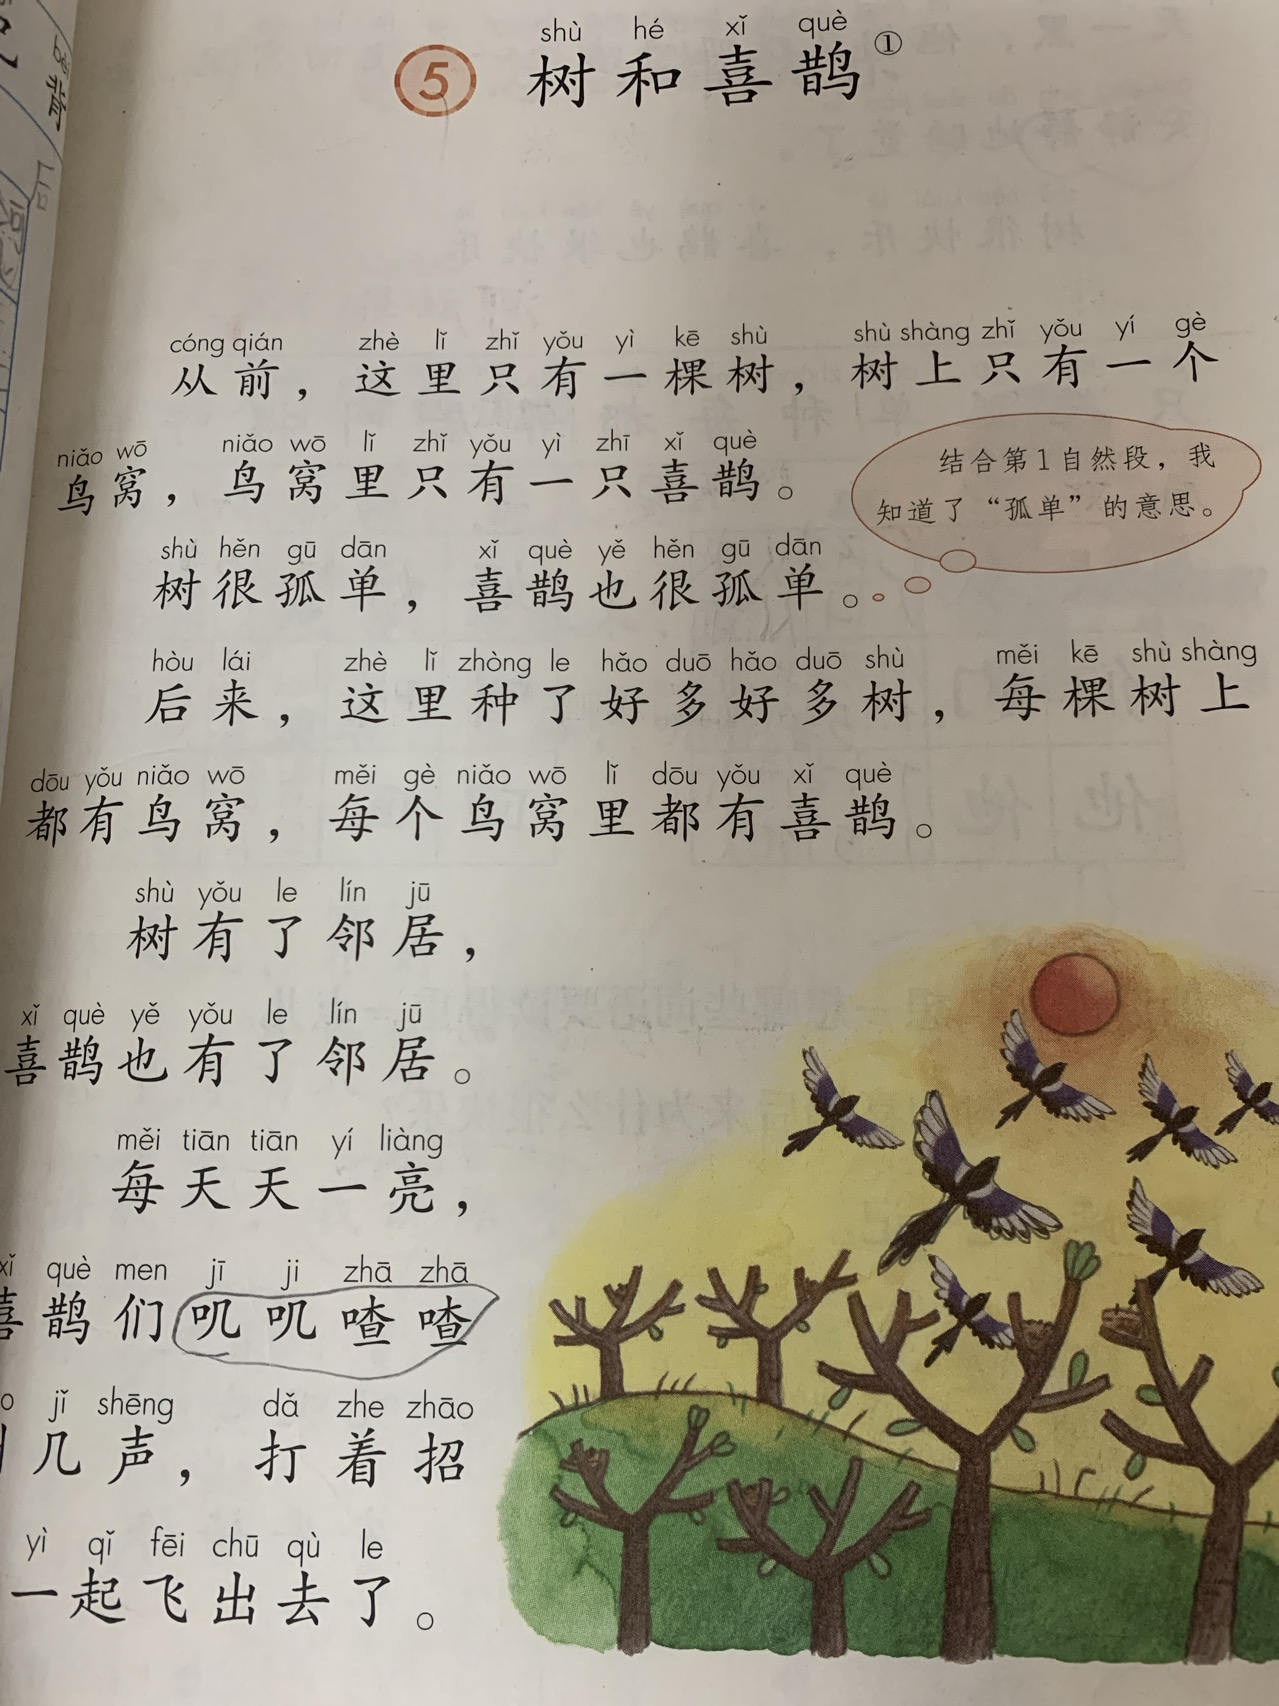 shù hé xǐ què
5 树和喜鹊①
cóng qián zhè lǐ zhǐ yǒu yì kē shù shù shàng zhǐ yǒu yí gè
从前，这里只有一棵树，树上只有一个
niǎo wō niǎo wō lǐ zhǐ yǒu yì zhī xǐ què
鸟窝，鸟窝里只有一只喜鹊。
结合第1自然段，我
知道了“孤单”的意思。
shù hěn gū dān xǐ què yě hěn gū dān
树很孤单，喜鹊也很孤单。
hòu lái zhè lǐ zhòng le hǎo duō hǎo duō shù měi kē shù shàng
后来，这里种了好多好多树，每棵树上
dōu yǒu niǎo wō měi gè niǎo wō lǐ dōu yǒu xǐ què
都有鸟窝，每个鸟窝里都有喜鹊。
shù yǒu le lín jū
树有了邻居，
xǐ què yě yǒu le lín jū
喜鹊也有了邻居。
měi tiān tiān yí liàng
每天天一亮，
xǐ què men jī ji zhā zhā
喜鹊们叽叽喳喳
jǐ shēng dǎ zhe zhāo
几声，打着招
yì qǐ fēi chū qù le
一起飞出去了。